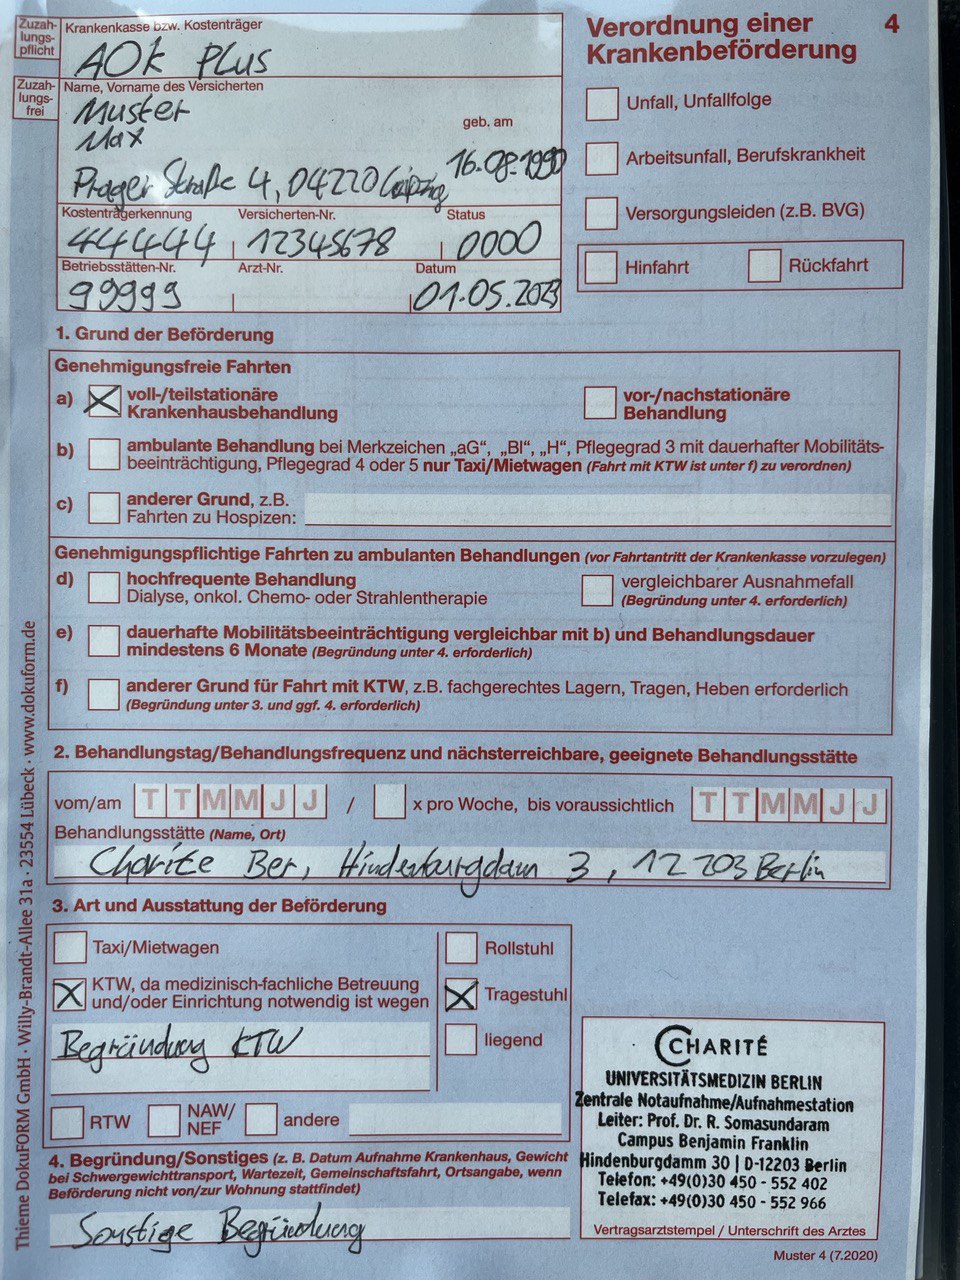 Zuzah-
lungs-
pflicht
Krankenkasse bzw. Kostenträger
AOK PLUS
Verordnung einer 4
Krankenbeförderung
Zuzah-
lungs-
frei
Name, Vorname des Versicherten
Muster
Max
geb. am
16.08.1990
Prager Straße 4, 04220 Leipzig
Unfall, Unfallfolge
Arbeitsunfall, Berufskrankheit
Versorgungsleiden (z.B. BVG)
Hinfahrt Rückfahrt
Kostenträgerkennung Versicherten-Nr. Status
44444 12345678 0000
Betriebsstätten-Nr. Arzt-Nr. Datum
99999 01.05.2023
1. Grund der Beförderung
Genehmigungsfreie Fahrten
a) voll-/teilstationäre vor-/nachstationäre
Krankenhausbehandlung Behandlung
b) ambulante Behandlung bei Merkzeichen „aG“, „Bl“, „H“, Pflegegrad 3 mit dauerhafter Mobilitäts-
beeinträchtigung, Pflegegrad 4 oder 5 nur Taxi/Mietwagen (Fahrt mit KTW ist unter f) zu verordnen)
c) anderer Grund, z.B.
Fahrten zu Hospizen:
Genehmigungspflichtige Fahrten zu ambulanten Behandlungen (vor Fahrtantritt der Krankenkasse vorzulegen)
d) hochfrequente Behandlung vergleichbarer Ausnahmefall
Dialyse, onkol. Chemo- oder Strahlentherapie (Begründung unter 4. erforderlich)
e) dauerhafte Mobilitätsbeeinträchtigung vergleichbar mit b) und Behandlungsdauer
mindestens 6 Monate (Begründung unter 4. erforderlich)
f) anderer Grund für Fahrt mit KTW, z.B. fachgerechtes Lagern, Tragen, Heben erforderlich
(Begründung unter 3. und ggf. 4. erforderlich)
2. Behandlungstag/Behandlungsfrequenz und nächsterreichbare, geeignete Behandlungsstätte
vom/am T T M M J J / x pro Woche, bis voraussichtlich T T M M J J
Behandlungsstätte (Name, Ort)
Charite Ber, Hindenburgdam 3, 12203 Berlin
3. Art und Ausstattung der Beförderung
Taxi/Mietwagen Rollstuhl
KTW, da medizinisch-fachliche Betreuung
und/oder Einrichtung notwendig ist wegen Tragestuhl
Begründung KTW liegend
RTW NAW/
NEF andere
4. Begründung/Sonstiges (z. B. Datum Aufnahme Krankenhaus, Gewicht
bei Schwergewichttransport, Wartezeit, Gemeinschaftsfahrt, Ortsangabe, wenn
Beförderung nicht von/zur Wohnung stattfindet)
Sonstige Begründung
CHARITÉ
UNIVERSITÄTSMEDIZIN BERLIN
Zentrale Notaufnahme/Aufnahmestation
Leiter: Prof. Dr. R. Somasundaram
Campus Benjamin Franklin
Hindenburgdamm 30 | D-12203 Berlin
Telefon: +49(0)30 450 - 552 402
Telefax: +49(0)30 450 - 552 966
Vertragsarztstempel / Unterschrift des Arztes
Muster 4 (7.2020)
Thieme DokuFORM GmbH · Willy-Brandt-Allee 31a · 23554 Lübeck · www.dokuform.de